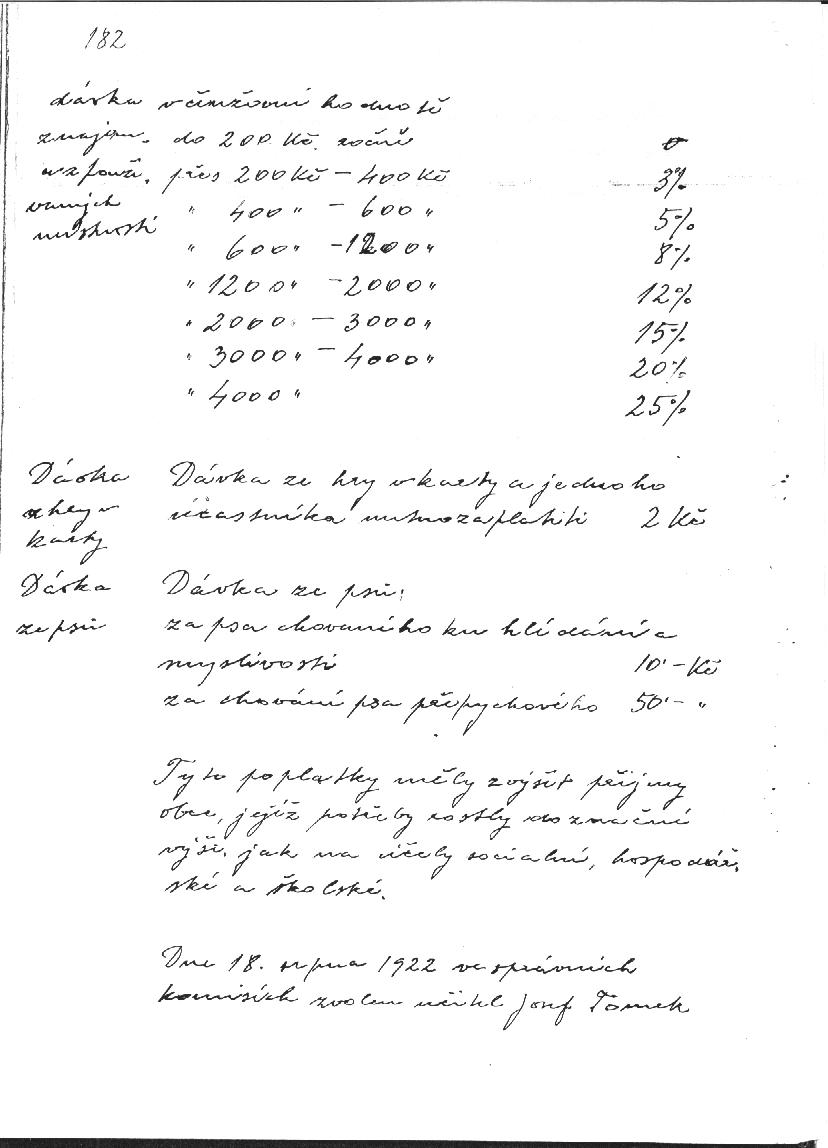 182
dávka v činžovní hodnotě
znájm. do 200 Kč. ročně 0
a zpouží, přes 200 Kč – 400 Kč 3%
vaných " 400 " – 600 " 5%
místností " 600 " – 1200 " 8%
" 1200 " – 2000 " 12%
" 2000 " – 3000 " 15%
" 3000 " – 4000 " 20%
" 4000 " 25%
Dávka Dávka ze hry v karty a jednoho
z hry v účastníka nutno zaplatiti 2 Kč
karty
Dávka Dávka ze psů:
ze psů za psa chovaného ku hlídání a
myslivosti 10'– Kč
za chování psa přepychového 50'– "
Tyto poplatky měly zvýšit příjmy
obce, jejíž potřeby rostly do značné
výše, jak na účely socialní, hospodář.
ské a školské.
Dne 18. srpna 1922 ve správních
komisích zvolen učitel Josef Tomek